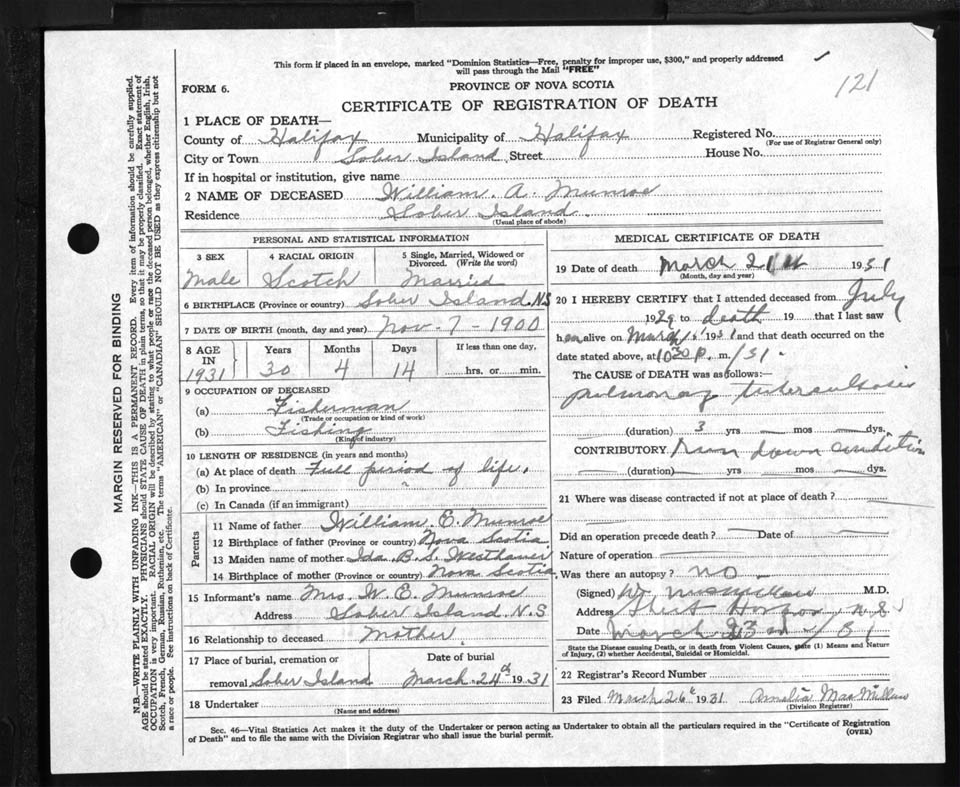 This form if placed in an envelope, marked "Dominion Statistics—Free, penalty for improper use, $300," and properly addressed
will pass through the Mail "FREE"
121
FORM 6.
PROVINCE OF NOVA SCOTIA
CERTIFICATE OF REGISTRATION OF DEATH
1 PLACE OF DEATH—
County of Halifax Municipality of Halifax Registered No.
(For use of Registrar General only)
City or Town Sober Island Street House No.
If in hospital or institution, give name
2 NAME OF DECEASED William. A. Munroe
Residence Sober Island.
(Usual place of abode)
PERSONAL AND STATISTICAL INFORMATION
3 SEX 4 RACIAL ORIGIN 5 Single, Married, Widowed or
Divorced. (Write the word)
Male Scotch Married
6 BIRTHPLACE (Province or country) Sober Island. N.S
7 DATE OF BIRTH (month, day and year) Nov - 7 - 1900
8 AGE IN 1931 Years Months Days If less than one day,
30 4 14 hrs. or min.
9 OCCUPATION OF DECEASED
(a) Fisherman
(Trade or occupation or kind of work)
(b) Fishing
(Kind of industry)
10 LENGTH OF RESIDENCE (in years and months)
(a) At place of death Full period of life.
(b) In province "
(c) In Canada (if an immigrant)
Parents
11 Name of father William. E. Munroe
12 Birthplace of father (Province or country) Nova Scotia
13 Maiden name of mother Ida B. S. Westhaver
14 Birthplace of mother (Province or country) Nova Scotia.
15 Informant's name Mrs. W. E. Munroe
Address Sober Island N.S
16 Relationship to deceased Mother
17 Place of burial, cremation or Date of burial
removal Sober Island March 24th 1931
18 Undertaker
(Name and address)
MEDICAL CERTIFICATE OF DEATH
19 Date of death March 21st 1931
(Month, day and year)
20 I HEREBY CERTIFY that I attended deceased from July
1929 to death 19 that I last saw
h on alive on March 1931 and that death occurred on
date stated above, at 10 30 P. m. /31.
The CAUSE of DEATH was as follows:—
pulmonary tuberculosis
(duration) 3 yrs — mos — dys.
CONTRIBUTORY. Run down condition
(duration) — yrs — mos — dys.
21 Where was disease contracted if not at place of death?
Did an operation precede death? — Date of —
Nature of operation —
Was there an autopsy? no -
(Signed) M.D.
Address Sheet Harbor N.S.
Date March 23rd /31
State the Disease causing Death, or in death from Violent Causes, state (1) Means and Nature
of Injury, (2) whether Accidental, Suicidal or Homicidal.
22 Registrar's Record Number
23 Filed March 26th 1931 Amelia MacMillan
(Division Registrar)
Sec. 46—Vital Statistics Act makes it the duty of the Undertaker or person acting as Undertaker to obtain all the particulars required in the "Certificate of Registration
of Death" and to file the same with the Division Registrar who shall issue the burial permit.
(OVER)
MARGIN RESERVED FOR BINDING
N.B.—WRITE PLAINLY WITH UNFADING INK—THIS IS A PERMANENT RECORD. Every item of information should be carefully supplied.
AGE should be stated EXACTLY. PHYSICIANS should STATE CAUSE OF DEATH in plain terms, so that it may be properly classified. Exact statement of
OCCUPATION is very important. RACIAL ORIGIN will be described by stating to what people or race the deceased person belonged, whether English, Irish,
Scotch, French, German, Russian, Ruthenian, etc. The terms "AMERICAN" or "CANADIAN" SHOULD NOT BE USED as they express citizenship but not
a race or people. See instructions on back of Certificate.